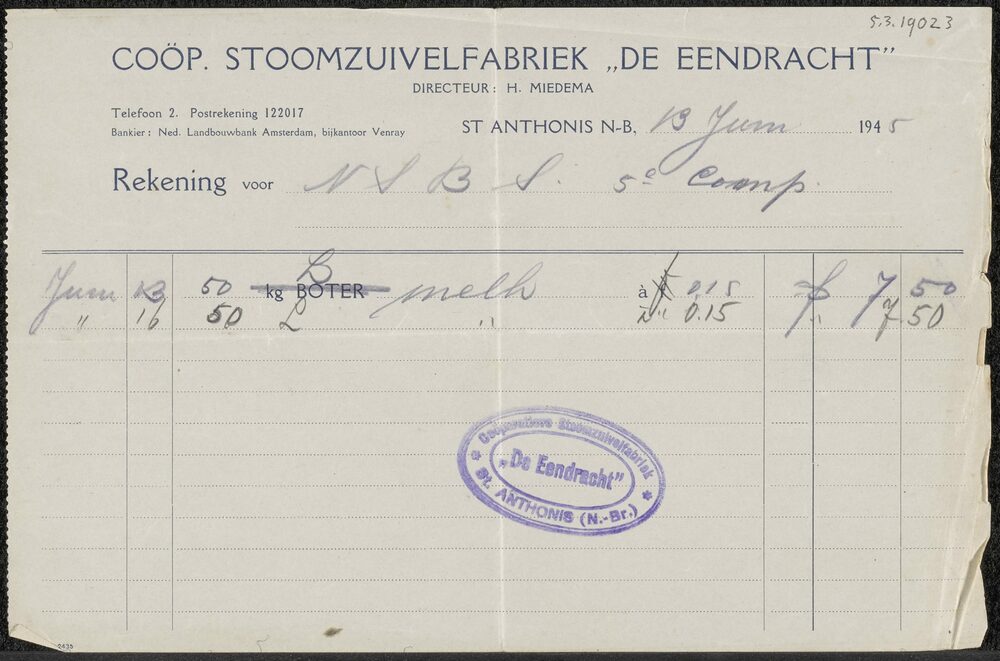 5.3.19023
COÖP. STOOMZUIVELFABRIEK „DE EENDRACHT”
DIRECTEUR: H. MIEDEMA
Telefoon 2. Postrekening 122017
Bankier: Ned. Landbouwbank Amsterdam, bijkantoor Venray
ST ANTHONIS N-B, 13 Juni 1945
Rekening voor N S B S. 5e Comp.
Juni 13 50 kg BOTER L melk à 0,15 f 7 50
„ 16 50 L „ à 0.15 „ 7.50
Coöperatieve Stoomzuivelfabriek
„De Eendracht”
St. ANTHONIS (N.-Br.)
2435